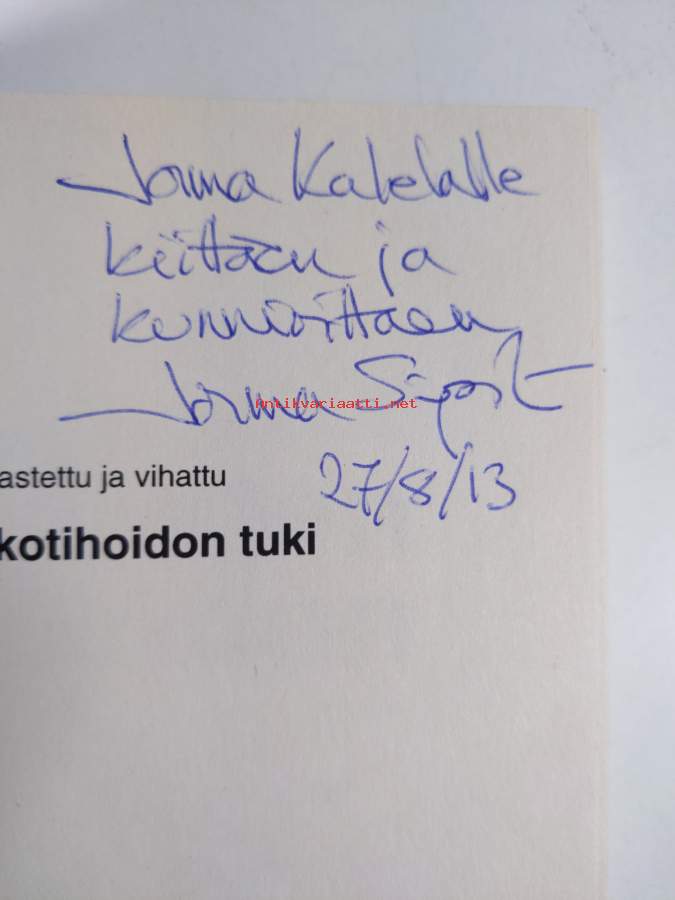 Jorma Kalelalle
kiittäen ja
kunnioittaen
Jorma Sipilä
antikvariaatti.net
27/8/13
astettu ja vihattu
kotihoidon tuki